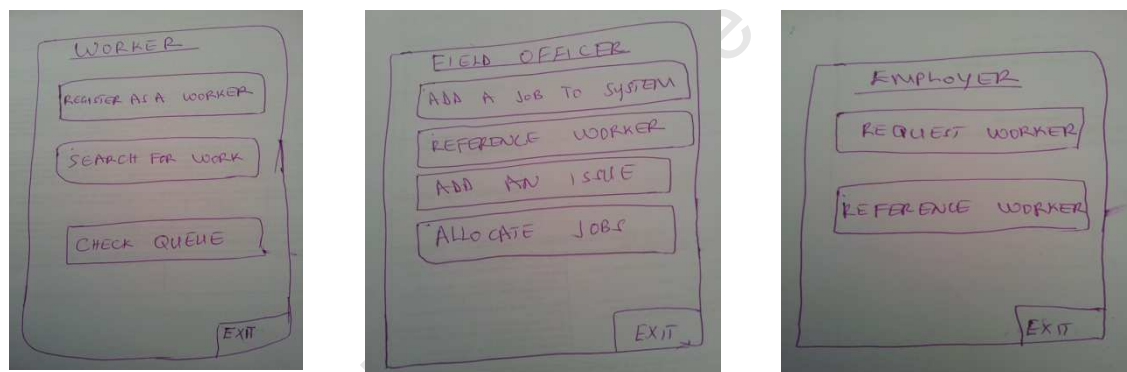 WORKER
REGISTER AS A WORKER
SEARCH FOR WORK
CHECK QUEUE
EXIT
FIELD OFFICER
ADD A JOB TO SYSTEM
REFERENCE WORKER
ADD AN ISSUE
ALLOCATE JOBS
EXIT
EMPLOYER
REQUEST WORKER
REFERENCE WORKER
EXIT